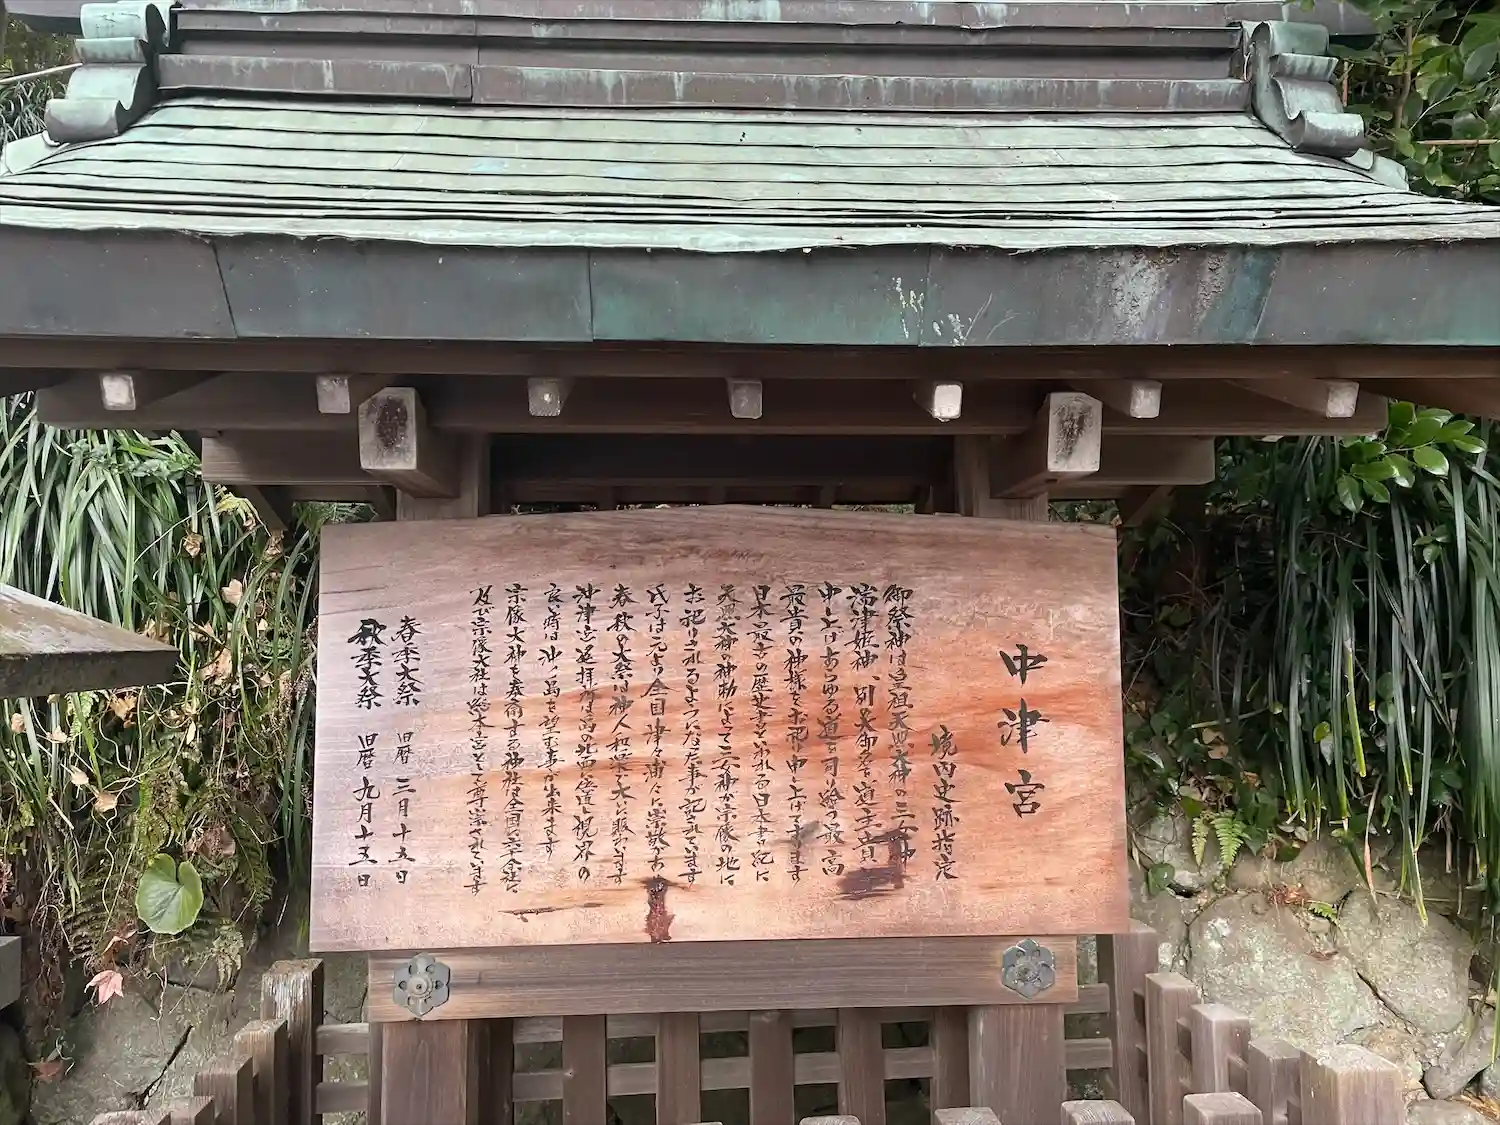 中津宮
境内史跡指定
御祭神は皇祖天照大神の三女神
湍津姫神、別名御名を道主貴
中し上げあらゆる道を司り給う最高
最貴の神様をお祀り申し上げてます
日本最古の歴史書といわれる日本書紀に
天照大神の神勅によって三女神が宗像の地に
お祀りされるようになった事が記されています
氏子は元より全国津々浦々に崇敬があ
春秋の大祭は神人和楽で大いに賑わいます
沖津宮遥拝所は島の北面に位置し視界の
良い時は沖ノ島を望む事が出来ます
宗像大神を奉斎する神社は全国六千余社に
及び宗像大社は総本宮として尊崇されています
春季大祭 旧暦 三月十五日
秋季大祭 旧暦 九月十五日